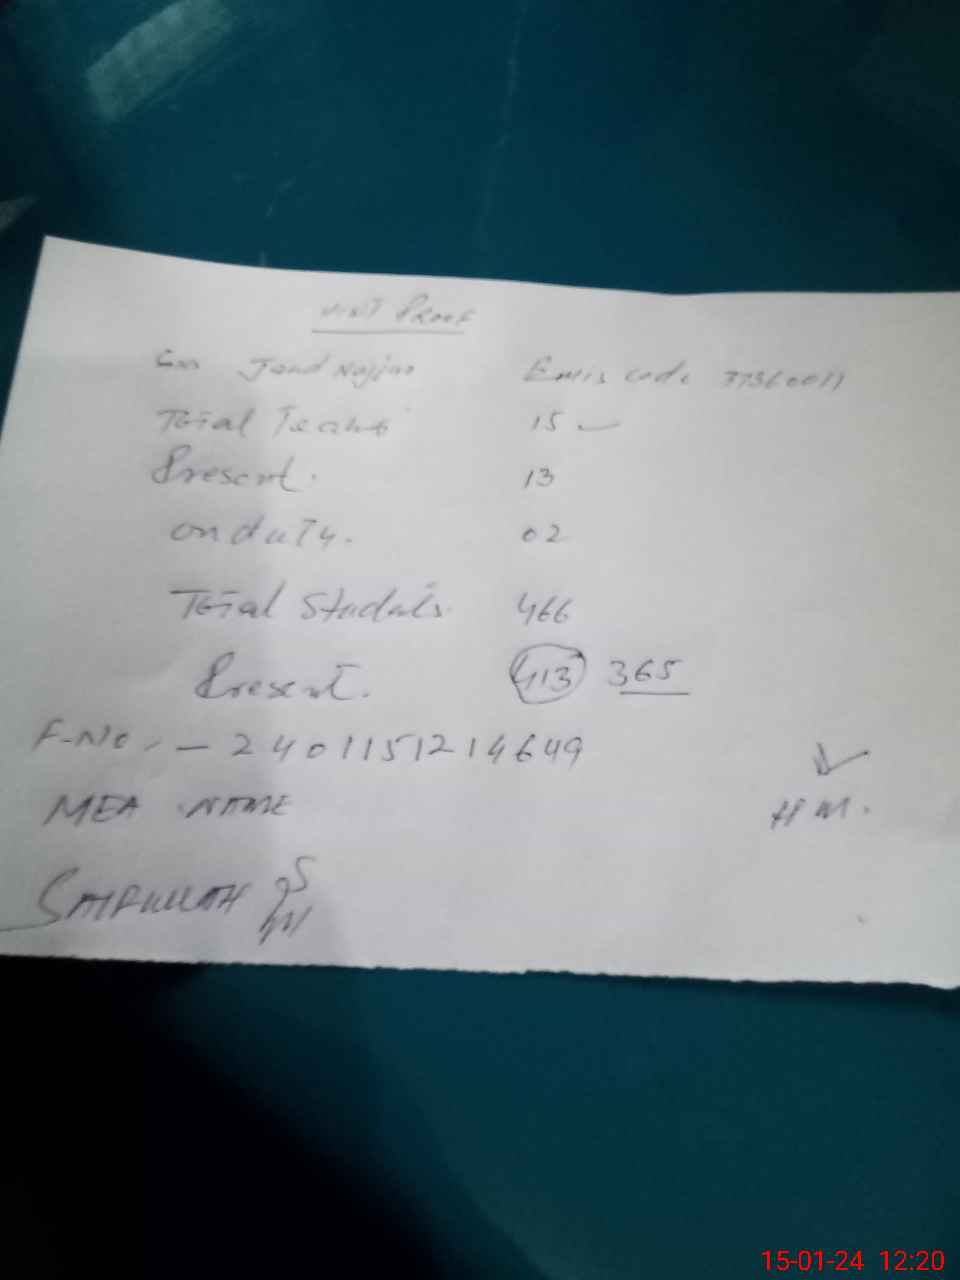 VISIT PROOF
Jand Najjar Emis code 37360011
Total Teach 15
Present. 13
on duTy. 02
Total Studals. 466
Present. 413 365
F-No. - 2401151214649
MEA NAME H M.
SAIFULLAH
15-01-24 12:20